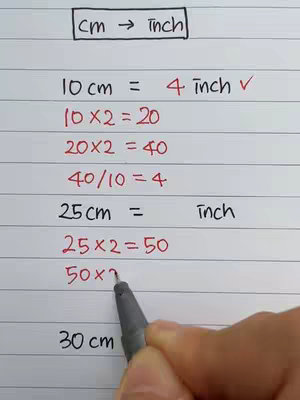 cm → inch
10 cm = 4 inch ✓
10 × 2 = 20
20 × 2 = 40
40/10 = 4
25 cm = inch
25 × 2 = 50
50 ×
30 cm